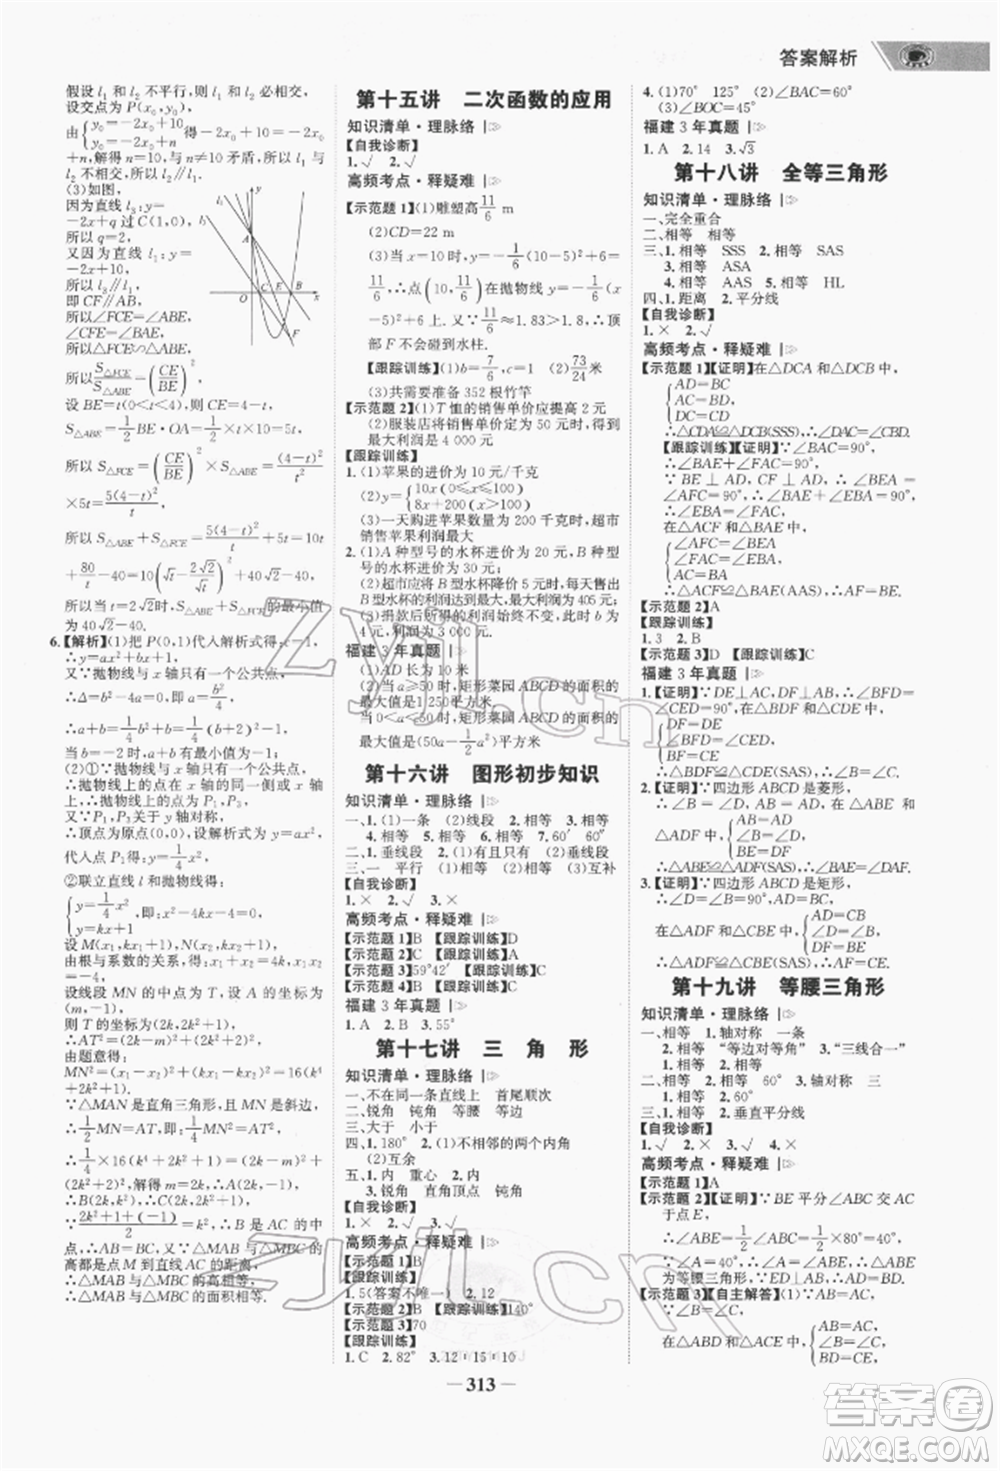 答案解析
假设 l₁ 和 l₂ 不平行,则 l₁ 和 l₂ 必相交,
设交点为 P(x₀,y₀),
由{y₀=-2x₀+10 y₀=-2x₀+n 得-2x₀+10=-2x₀
+n,解得 n=10,与 n≠10 矛盾,所以 l₁ 与
l₂ 不相交,所以 l₁∥l₂.
(3)如图,
因为直线 l₃:y=
-2x+q 过 C(1,0),
所以 q=2,
又因为直线 l₁:y=
-2x+10,
所以 l₃∥l₁,
即 CF∥AB,
所以∠FCE=∠ABE,
∠CFE=∠BAE,
所以△FCE∽△ABE,
所以 S△FCE/S△ABE=(CE/BE)²,
设 BE=t(0<t<4),则 CE=4-t,
S△ABE=1/2 BE·OA=1/2×t×10=5t,
所以 S△FCE=(CE/BE)²×S△ABE=((4-t)/t)²
×5t=5(4-t)²/t,
所以 S△ABE+S△FCE=5t+5(4-t)²/t=10t
+80/t-40=10(√t-2√2/√t)²+40√2-40,
所以当 t=2√2时,S△ABE+S△FCE的最小值
为40√2-40.
6.【解析】(1)把 P(0,1)代入解析式得:c=1,
∴y=ax²+bx+1,
又∵抛物线与 x 轴只有一个公共点,
∴Δ=b²-4a=0,即 a=b²/4,
∴a+b=b²/4+b=1/4(b+2)²-1,
当 b=-2时,a+b有最小值为-1;
(2)①∵抛物线与 x 轴只有一个公共点,
∴抛物线上的顶点在 x 轴上,
∴抛物线上的点为 P₁,P₃,
又∵P₁,P₃关于 y 轴对称,
∴顶点为原点(0,0),设解析式为 y=ax²,
代入点 P₁得:y=1/4x².
②联立直线 l 和抛物线得:
{y=1/4x² y=kx+1,即:x²-4kx-4=0,
设 M(x₁,kx₁+1),N(x₂,kx₂+1),
由根与系数的关系得:x₁+x₂=4k,x₁x₂=-4,
设线段 MN 的中点为 T,设 A 的坐标为
(m,-1),
则 T 的坐标为(2k,2k²+1),
∴AT²=(2k-m)²+(2k²+2)²,
由题意得:
MN²=(x₁-x₂)²+k²(x₁-x₂)²
=16(k⁴+2k²+1),
∵△MAN 是直角三角形,且 MN 是斜边,
∴1/2MN=AT,即:1/4MN²=AT²,
∴1/4×16(k⁴+2k²+1)=(2k-m)²+
(2k²+2)²,解得 m=2k,
∴A(2k,-1),∴B(2k,k²),∴C(2k,2k²+1),
∵(2k²+1+(-1))/2=k²,∴B 是 AC 的中点,
∴AB=BC,又∵△MAB 与△MBC 的
高都是点 M 到直线 AC 的距离,
∴△MAB 与△MBC 的高相等,
∴△MAB 与△MBC 的面积相等.
第十五讲 二次函数的应用
知识清单·理脉络
【自我诊断】
1.√ 2.√
高频考点·释疑难
【示范题1】(1)雕塑高11/6 m
(2)CD=22 m
(3)当 x=10时,y=-1/6(10-5)²+6=
11/6,∴点(10,11/6)在抛物线 y=-1/6(x
-5)²+6上.又∵11/6≈1.83>1.8,∴顶
部 F 不会碰到水柱.
【跟踪训练】(1)b=7/6 (2)73/24米
(3)共需要准备 352 根竹竿
【示范题2】(1)T 恤的销售单价应提高2元
(2)当服装店将销售单价定为50元时,得到
最大利润是 4 000 元
【跟踪训练】
1.(1)苹果的进价为10元/千克
(2)y={10x(0≤x≤100) 8x+200(x>100)
(3)一天购进苹果数量为200千克时,超市
销售苹果利润最大
2.(1)A种型号的水杯进价为20元,B种型号
的水杯进价为30元;
(2)超市应将B型水杯降价5元后,每天售出
B型水杯的利润达到最大,最大利润为405元;
(3)捐款后所得的利润始终不变,此时 b为
4元,利润为3 000元.
福建3年真题
1.(1)AD 长为10米
(2)当 a≥50时,矩形菜园 ABCD 的面积的
最大值为1 250平方米;
当0<a<50时,矩形菜园 ABCD 的面积的
最大值为(50a-1/2a²)平方米
第十六讲 图形初步知识
知识清单·理脉络
一、1.(1)一条 (2)线段 2.相等 3.相等
4.相等 5.相等 6.相等 7.60′ 60″
二、1.垂线段 2.(1)有且只有 (2)垂线段
三、1.一 平行 (1)相等 (2)相等 (3)互补
【自我诊断】
1.× 2.√ 3.×
高频考点·释疑难
【示范题1】B 【跟踪训练】D
【示范题2】C 【跟踪训练】A
【示范题3】59°42′ 【跟踪训练】C
【示范题4】B 【跟踪训练】C
福建3年真题
1.A 2.B 3.55°
第十七讲 三角形
知识清单·理脉络
一、不在同一条直线上 首尾顺次
二、锐角 钝角 等腰 等边
三、大于 小于
四、1.180° 2.(1)不相邻的两个内角
(2)互余
五、1.内 重心 2.内
3.锐角 直角顶点 钝角
【自我诊断】
1.× 2.× 3.√ 4.×
高频考点·释疑难
【示范题1】B
【跟踪训练】
1.5(答案不唯一) 2.12
【示范题2】B 【跟踪训练】140°
【示范题3】70
【跟踪训练】
1.C 2.82° 3.12∶15∶10
4.(1)70° 125° (2)∠BAC=60°
(3)∠BOC=45°
福建3年真题
1.A 2.14 3.√3
第十八讲 全等三角形
知识清单·理脉络
一、完全重合
二、相等 相等
三、1.相等 SSS 2.相等 SAS
3.相等 ASA
4.相等 AAS 5.相等 HL
四、1.距离 2.平分线
【自我诊断】
1.× 2.√
高频考点·释疑难
【示范题1】【证明】在△DCA 和△DCB 中,
{AD=BC AC=BD CD=DC
∴△CDA≌△DCB(SSS),∴∠C=∠D.
【跟踪训练】【证明】∵∠BAC=90°,
∴∠BAE+∠FAC=90°,
∵BE⊥AD,CF⊥AF,∴∠BEA=
∠AFC=90°,∴∠BAE+∠EBA=90°,
∴∠EBA=∠FAC,
在△ACF 和△BAE 中,
{∠AFC=∠BEA ∠FAC=∠EBA AC=BA
∴△ACF≌△BAE(AAS),∴AF=BE.
【示范题2】A
【跟踪训练】
1.3 2.D
【示范题3】D 【跟踪训练】C
福建3年真题
1.【证明】∵DE⊥AC,DF⊥BC,
∴∠DEC=∠DFB=90°,
在△CDE 和△BDF 中,
∴△CDE≌△BDF(SAS),∴∠B=∠C.
2.【证明】∵四边形 ABCD 是菱形,
∴∠B=∠D,AB=AD,在△ABE 和
△ADF 中,{AB=AD ∠B=∠D BE=DF
∴△ABE≌△ADF(SAS),∴∠BAE=∠DAF.
3.【证明】∵四边形 ABCD 是矩形,
∴∠D=∠B=90°,AD=BC,
在△ADF 和△CBE 中,{AD=CB ∠D=∠B DF=BE
∴△ADF≌△CBE(SAS),∴AF=CE.
第十九讲 等腰三角形
知识清单·理脉络
一、相等 1.轴对称 一条
2.相等 “等边对等角” 3.“三线合一”
4.相等 5.相等 6.相等
二、相等 1.相等 2.相等 60° 3.轴对称 三
三、1.相等 2.垂直平分线
【自我诊断】
1.√ 2.× 3.√ 4.×
高频考点·释疑难
【示范题1】A
【示范题2】【证明】∵BE 平分∠ABC 交 AC
于点 E,
∴∠ABE=1/2∠ABC=1/2×80°=40°,
∵∠A=40°,∴∠A=∠ABE,∴△ABE
为等腰三角形.
【示范题3】【自主解答】(1)∵AB=AC,
∴∠B=∠C,
在△ABD 和△ACE 中,{AB=AC ∠B=∠C BD=CE
313
zyjl.cn
答案圈
MXQE.COM